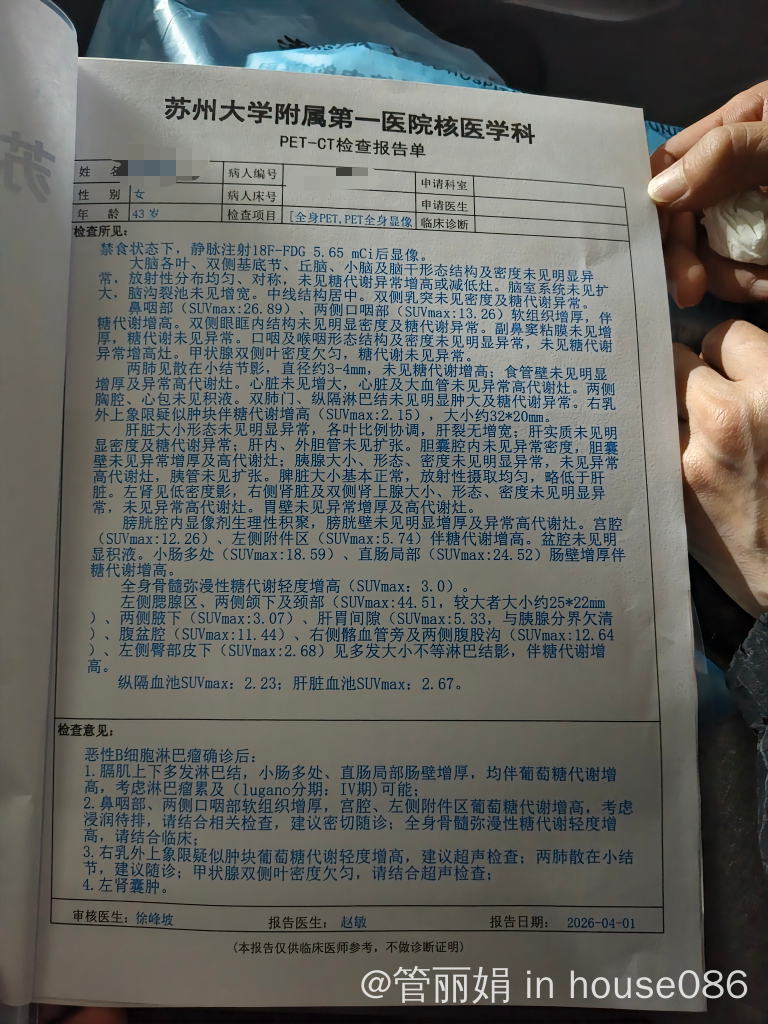 苏州大学附属第一医院核医学科
PET-CT检查报告单
姓 名 病人编号 申请科室
性 别 女 病人床号 申请医生
年 龄 43岁 检查项目 [全身PET,PET全身显像 临床诊断
检查所见:
禁食状态下，静脉注射18F-FDG 5.65 mCi后显像。
大脑各叶、双侧基底节、丘脑、小脑及脑干形态结构及密度未见明显异
常，放射性分布均匀、对称，未见糖代谢异常增高或减低灶。脑室系统未见扩
大，脑沟裂池未见增宽。中线结构居中。双侧乳突未见密度及糖代谢异常。
鼻咽部（SUVmax:26.89）、两侧口咽部（SUVmax:13.26）软组织增厚，伴
糖代谢增高。双侧眼眶内结构未见明显密度及糖代谢异常。副鼻窦粘膜未见增
厚，糖代谢未见异常。口咽及喉咽形态结构及密度未见明显异常，未见糖代谢
异常增高灶。甲状腺双侧叶密度欠匀，糖代谢未见异常。
两肺见散在小结节影，直径约3-4mm，未见糖代谢增高；食管壁未见明显
增厚及异常高代谢灶。心脏未见增大，心脏及大血管未见异常高代谢灶。两侧
胸腔、心包未见积液。双肺门、纵隔淋巴结未见明显肿大及糖代谢异常。右乳
外上象限疑似肿块伴糖代谢增高（SUVmax:2.15），大小约32*20mm。
肝脏大小形态未见明显异常，各叶比例协调，肝裂无增宽；肝实质未见明
显密度及糖代谢异常；肝内、外胆管未见扩张。胆囊腔内未见异常密度，胆囊
壁未见异常增厚及高代谢灶；胰腺大小、形态、密度未见明显异常，未见异常
高代谢灶，胰管未见扩张。脾脏大小基本正常，放射性摄取均匀，略低于肝
脏。左肾见低密度影，右侧肾脏及双侧肾上腺大小、形态、密度未见明显异
常，未见异常高代谢灶。胃壁未见异常增厚及高代谢灶。
膀胱腔内显像剂生理性积聚，膀胱壁未见明显增厚及异常高代谢灶。宫腔
（SUVmax:12.26）、左侧附件区（SUVmax:5.74）伴糖代谢增高。盆腔未见明
显积液。小肠多处（SUVmax:18.59）、直肠局部（SUVmax:24.52）肠壁增厚伴
糖代谢增高。
全身骨髓弥漫性糖代谢轻度增高（SUVmax: 3.0）。
左侧腮腺区、两侧颌下及颈部（SUVmax:44.51，较大者大小约25*22mm
）、两侧腋下（SUVmax:3.07）、肝胃间隙（SUVmax:5.33，与胰腺分界欠清
）、腹盆腔（SUVmax:11.44）、右侧髂血管旁及两侧腹股沟（SUVmax:12.64
）、左侧臀部皮下（SUVmax:2.68）见多发大小不等淋巴结影，伴糖代谢增
高。
纵隔血池SUVmax: 2.23；肝脏血池SUVmax: 2.67。
检查意见:
恶性B细胞淋巴瘤确诊后:
1.膈肌上下多发淋巴结，小肠多处、直肠局部肠壁增厚，均伴葡萄糖代谢增
高，考虑淋巴瘤累及（lugano分期: IV期)可能；
2.鼻咽部、两侧口咽部软组织增厚，宫腔、左侧附件区葡萄糖代谢增高，考虑
浸润待排，请结合相关检查，建议密切随诊；全身骨髓弥漫性糖代谢轻度增
高，请结合临床；
3.右乳外上象限疑似肿块葡萄糖代谢轻度增高，建议超声检查；两肺散在小结
节，建议随诊；甲状腺双侧叶密度欠匀，请结合超声检查；
4.左肾囊肿。
审核医生: 徐峰坡 报告医生: 赵敏 报告日期: 2026-04-01
（本报告仅供临床医师参考，不做诊断证明）
@管丽娟 in house086